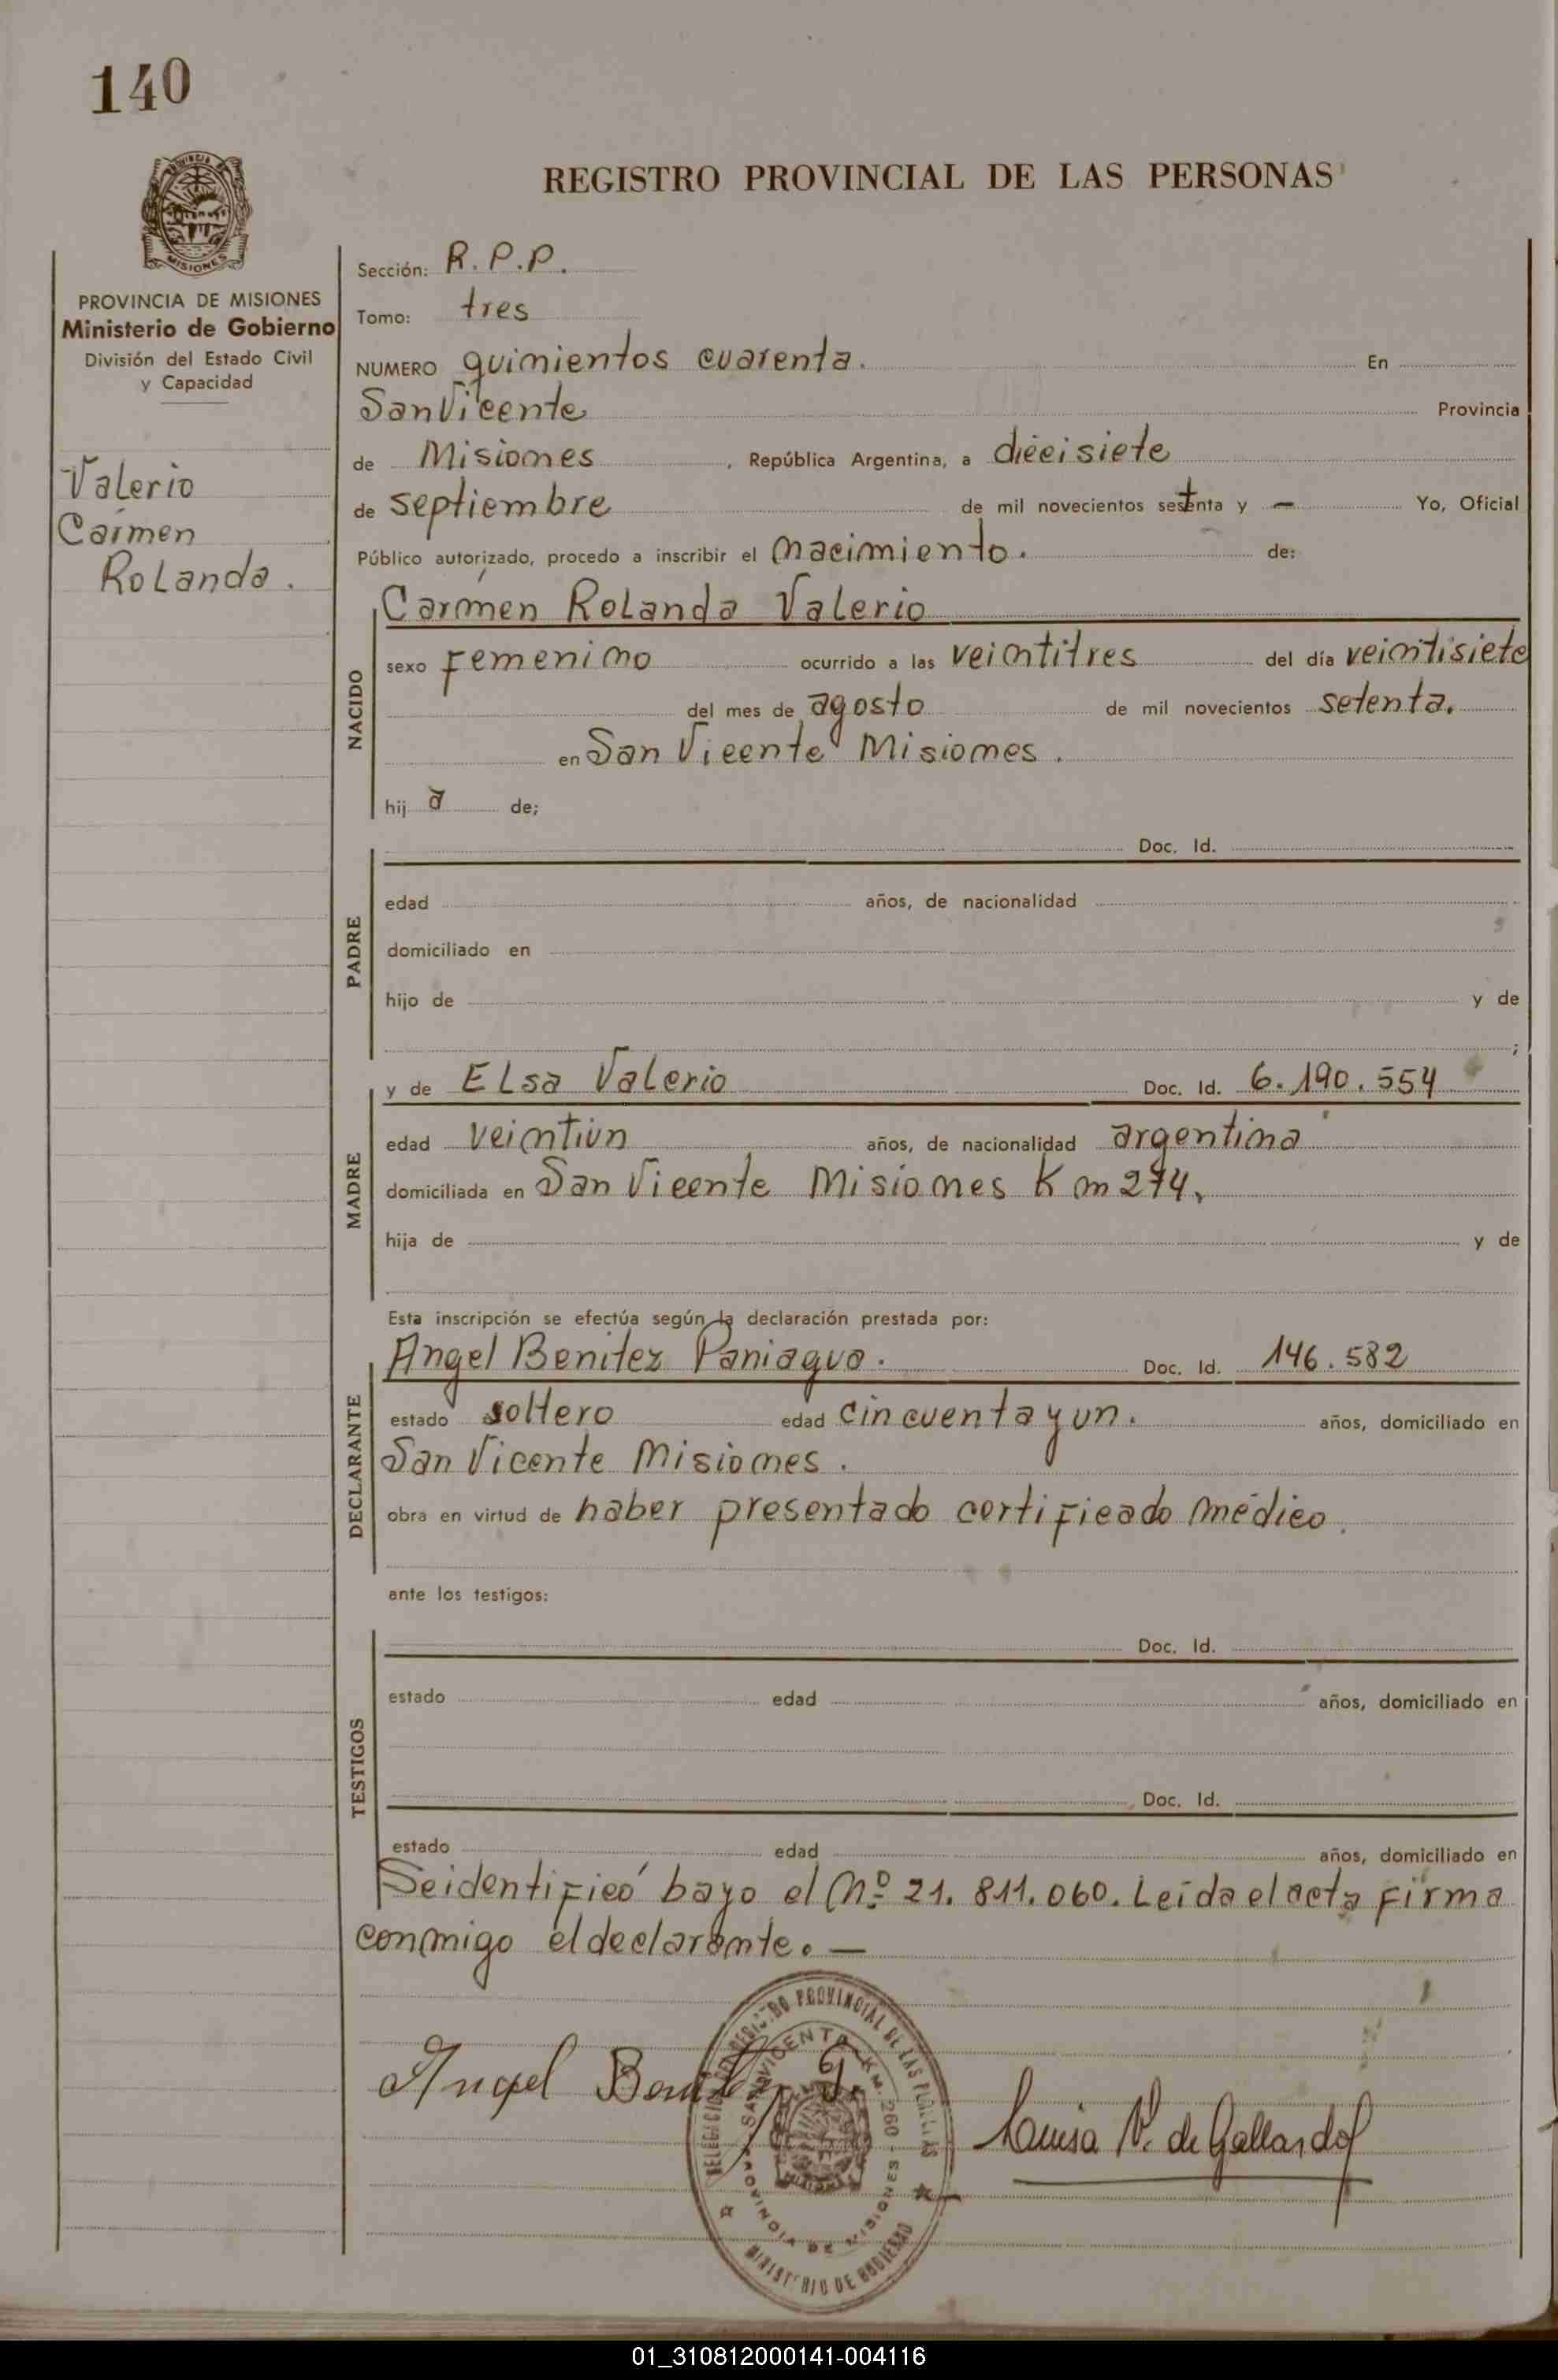 140
PROVINCIA DE MISIONES
Ministerio de Gobierno
División del Estado Civil
y Capacidad
Valerio
Carmen
Rolanda.
REGISTRO PROVINCIAL DE LAS PERSONAS
Sección: R.P.P.
Tomo: tres
NUMERO quinientos cuarenta. En
San Vicente Provincia
de Misiones, República Argentina, a diecisiete
de septiembre de mil novecientos setenta y — Yo, Oficial
Público autorizado, procedo a inscribir el nacimiento. de:
NACIDO
Carmen Rolanda Valerio
sexo femenino ocurrido a las veintitres del día veintisiete
del mes de agosto de mil novecientos setenta.
en San Vicente Misiones.
hij a de;
PADRE
Doc. Id.
edad años, de nacionalidad
domiciliado en
hijo de y de
;
MADRE
y de Elsa Valerio Doc. Id. 6.190.554
edad veintiun años, de nacionalidad argentina
domiciliada en San Vicente Misiones Km 274.
hija de y de
Esta inscripción se efectúa según la declaración prestada por:
DECLARANTE
Angel Benitez Paniagua. Doc. Id. 146.582
estado soltero edad cincuenta y un. años, domiciliado en
San Vicente Misiones.
obra en virtud de haber presentado certificado médico.
ante los testigos:
TESTIGOS
Doc. Id.
estado edad años, domiciliado en
Doc. Id.
estado edad años, domiciliado en
Se identificó bayo el Nº 21.811.060. Leída el acta firma
conmigo el declarante. —
Angel Benitez P.
Luisa V. de Gallardo
DELEGACION DEL REGISTRO PROVINCIAL DE LAS PERSONAS
SAN VICENTE - KM. 260 -
PROVINCIA DE MISIONES
MINISTERIO DE GOBIERNO
01_310812000141-004116